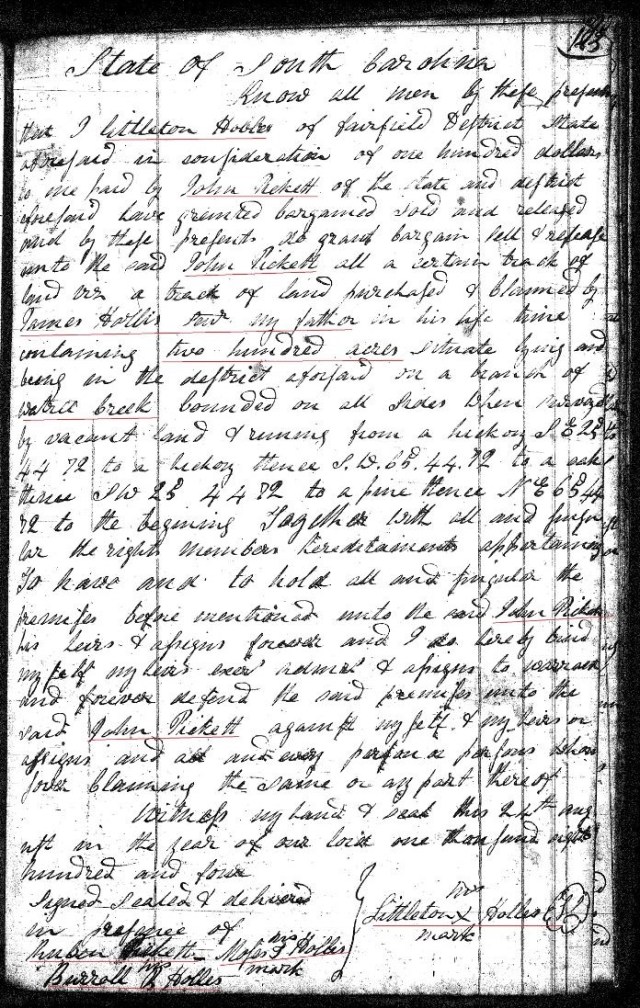 State of South Carolina
Know all men by these presents
that I Littleton Hobbes of fairfield District State
aforesaid in consideration of one hundred dollars
to me paid by John Pickett of the state and district
aforesaid have granted bargained sold and released
and by these presents do grant bargain sell & release
unto the said John Pickett all a certain track of
land on a track of land purchased & claimed by
James Hollis my father in his life time
containing two hundred acres situate lying and
being in the district aforsaid on a branch of
creek bounded on all sides When
by vacant land & runing from a hickory S E 25
44 72 to a hickory thence S. W. 65. 44. 72 to a oak
thence S W 25 44 72 to a pine thence N E 65 44
72 to the begining Together With all and singu
lar the rights members hereditaments
To have and to hold all and singular the
premises before mentioned unto the said John Picket
his heirs & assigns forever and I do hereby bind
my self my heirs exer admrs & assigns to warrant
and forever defend the said premises unto the
said John Pickett against my self & my heirs or
assigns and all and every person or persons whom
soever Claiming the same or any part thereof
Witness my hand & seal this 24th aug
ust in the year of our lord one thousand eight
hundred and four
Signed sealed & delivered
in presence of
Pickett Moses his Hollis
mark
Burroll Hollis
his
Littleton X Hollis
mark